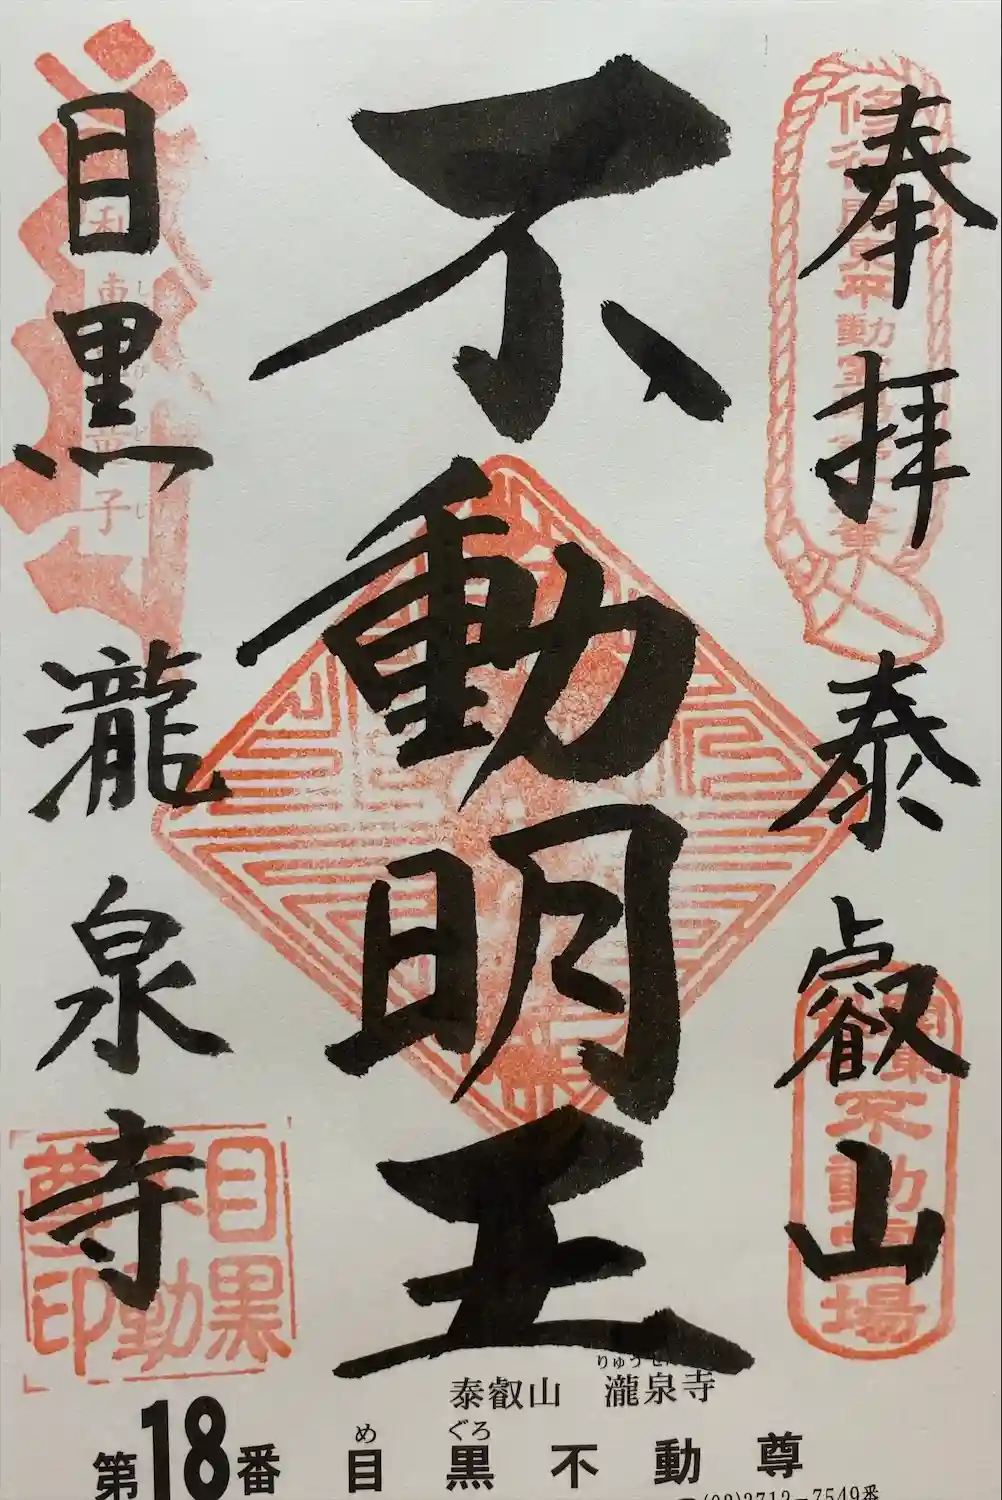 奉拝 泰叡山
不動明王
目黒 瀧泉寺
関東不動霊場
目黒不動尊印
泰叡山 瀧泉寺
めぐろ
第18番 目黒不動尊
(03)3712-7549番